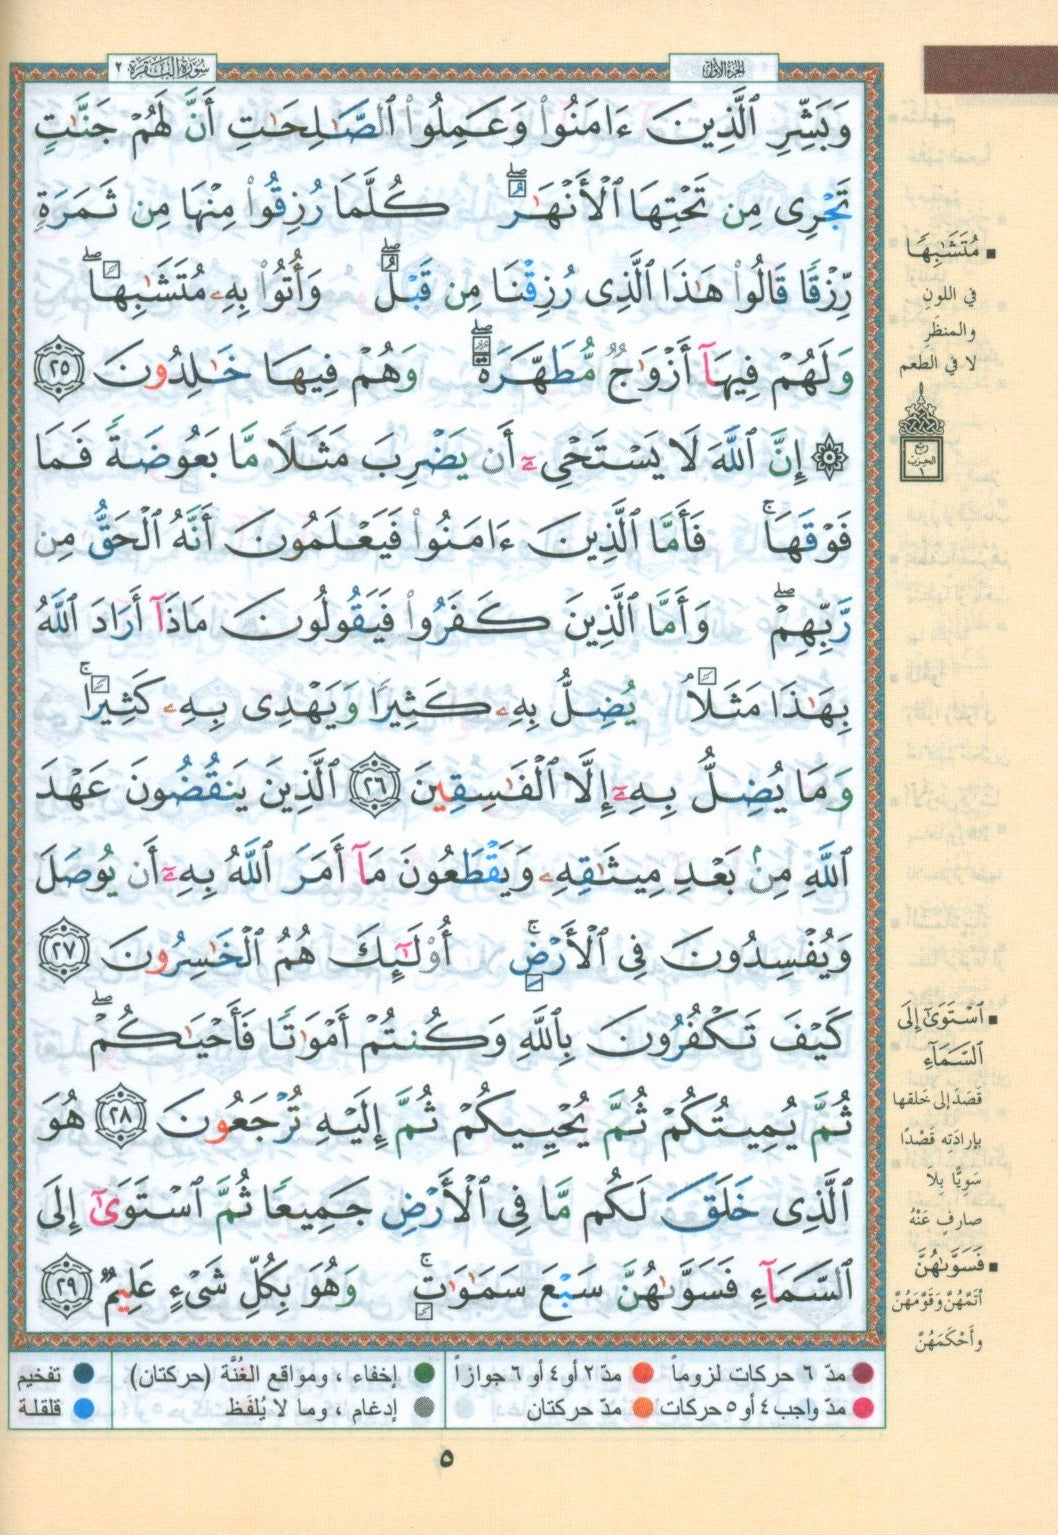 سُورَةُ البَقَرَة ٢
الجزء الأول
وَبَشِّرِ ٱلَّذِينَ ءَامَنُوا۟ وَعَمِلُوا۟ ٱلصَّـٰلِحَـٰتِ أَنَّ لَهُمْ جَنَّـٰتٍ
تَجْرِى مِن تَحْتِهَا ٱلْأَنْهَـٰرُ ۖ كُلَّمَا رُزِقُوا۟ مِنْهَا مِن ثَمَرَةٍ
رِّزْقًا قَالُوا۟ هَـٰذَا ٱلَّذِى رُزِقْنَا مِن قَبْلُ ۖ وَأُتُوا۟ بِهِۦ مُتَشَـٰبِهًا ۖ
وَلَهُمْ فِيهَآ أَزْوَٰجٌ مُّطَهَّرَةٌ ۖ وَهُمْ فِيهَا خَـٰلِدُونَ ٢٥
۞ إِنَّ ٱللَّهَ لَا يَسْتَحْىِۦٓ أَن يَضْرِبَ مَثَلًا مَّا بَعُوضَةً فَمَا
فَوْقَهَا ۚ فَأَمَّا ٱلَّذِينَ ءَامَنُوا۟ فَيَعْلَمُونَ أَنَّهُ ٱلْحَقُّ مِن
رَّبِّهِمْ ۖ وَأَمَّا ٱلَّذِينَ كَفَرُوا۟ فَيَقُولُونَ مَاذَآ أَرَادَ ٱللَّهُ
بِهَـٰذَا مَثَلًا ۘ يُضِلُّ بِهِۦ كَثِيرًا وَيَهْدِى بِهِۦ كَثِيرًا ۚ
وَمَا يُضِلُّ بِهِۦٓ إِلَّا ٱلْفَـٰسِقِينَ ٢٦ ٱلَّذِينَ يَنقُضُونَ عَهْدَ
ٱللَّهِ مِنۢ بَعْدِ مِيثَـٰقِهِۦ وَيَقْطَعُونَ مَآ أَمَرَ ٱللَّهُ بِهِۦٓ أَن يُوصَلَ
وَيُفْسِدُونَ فِى ٱلْأَرْضِ ۚ أُو۟لَـٰٓئِكَ هُمُ ٱلْخَـٰسِرُونَ ٢٧
كَيْفَ تَكْفُرُونَ بِٱللَّهِ وَكُنتُمْ أَمْوَٰتًا فَأَحْيَـٰكُمْ ۖ
ثُمَّ يُمِيتُكُمْ ثُمَّ يُحْيِيكُمْ ثُمَّ إِلَيْهِ تُرْجَعُونَ ٢٨ هُوَ
ٱلَّذِى خَلَقَ لَكُم مَّا فِى ٱلْأَرْضِ جَمِيعًا ثُمَّ ٱسْتَوَىٰٓ إِلَى
ٱلسَّمَآءِ فَسَوَّىٰهُنَّ سَبْعَ سَمَـٰوَٰتٍ ۚ وَهُوَ بِكُلِّ شَىْءٍ عَلِيمٌ ٢٩
▪ مُتَشَـٰبِهًا
في اللونِ
والمنظَرِ
لا في الطعم
ربع
الحزب
١
▪ ٱسْتَوَىٰٓ إِلَى
ٱلسَّمَآءِ
قصَدَ إلى خلقها
بإرادَتِه قَصْدًا
سَوِيًّا بِلاَ
صارفٍ عَنْهُ
▪ فَسَوَّىٰهُنَّ
أَتَمَّهُنَّ وَقَوَّمَهُنَّ
وأَحْكَمَهُنَّ
مدّ ٦ حركات لزوماً ● مدّ ٢ أو ٤ أو ٦ جوازاً ● إخفاء ، ومواقع الغُنَّة (حركتان) ● تفخيم
مدّ واجب ٤ أو ٥ حركات ● مدّ حركتان ● إدغام ، وما لا يُلفَظ ● قلقلة
٥